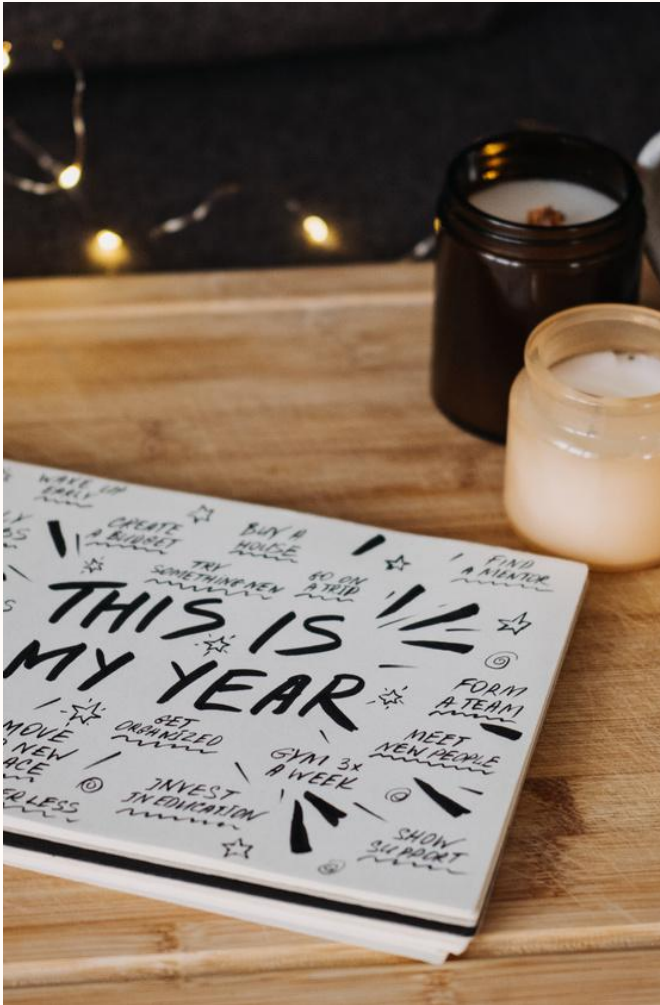 WAKE UP
EARLY
CREATE
A BUDGET
BUY A
HOUSE
TRY
SOMETHING NEW
GO ON
A TRIP
FIND
A MENTOR
THIS IS
MY YEAR
FORM
A TEAM
GET
ORGANIZED
MEET
NEW PEOPLE
MOVE
NEW
GYM 3X
A WEEK
INVEST
IN EDUCATION
LESS
SHOW
SUPPORT